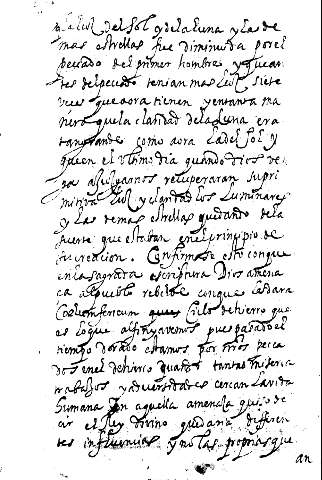 la luz del sol y dela luna y las de
mas estrellas fue diminuida por el
peccado del primer hombre y que an
tes del peccado tenian mas luz siete
veces que aora tienen y en tanta ma
nera que la claridad dela luna era
tan grande como aora la del sol y
que en el ultimo dia quando dios ve
ga a juzgarnos recuperaran su pri
mitiva luz y claridad los luminares
y las demas estrellas quedando dela
suerte que estaban en el principio de
su creacion. Confirmase esto con que
en la sagrada escriptura Dios amena
ca al pueblo rebelde con que le dara
Coelum ferreum Cielo de hierro que
es lo que al fin vemos pues pasado el
tiempo dorado estamos por nros pecca
dos en el de hierro quatas tantas miserias
trabajos y adversidades cercan la vida
humana En aquella amenaza quiso de
cir el Rey divino quedaria differen
tes influencias y no las proprias que
an